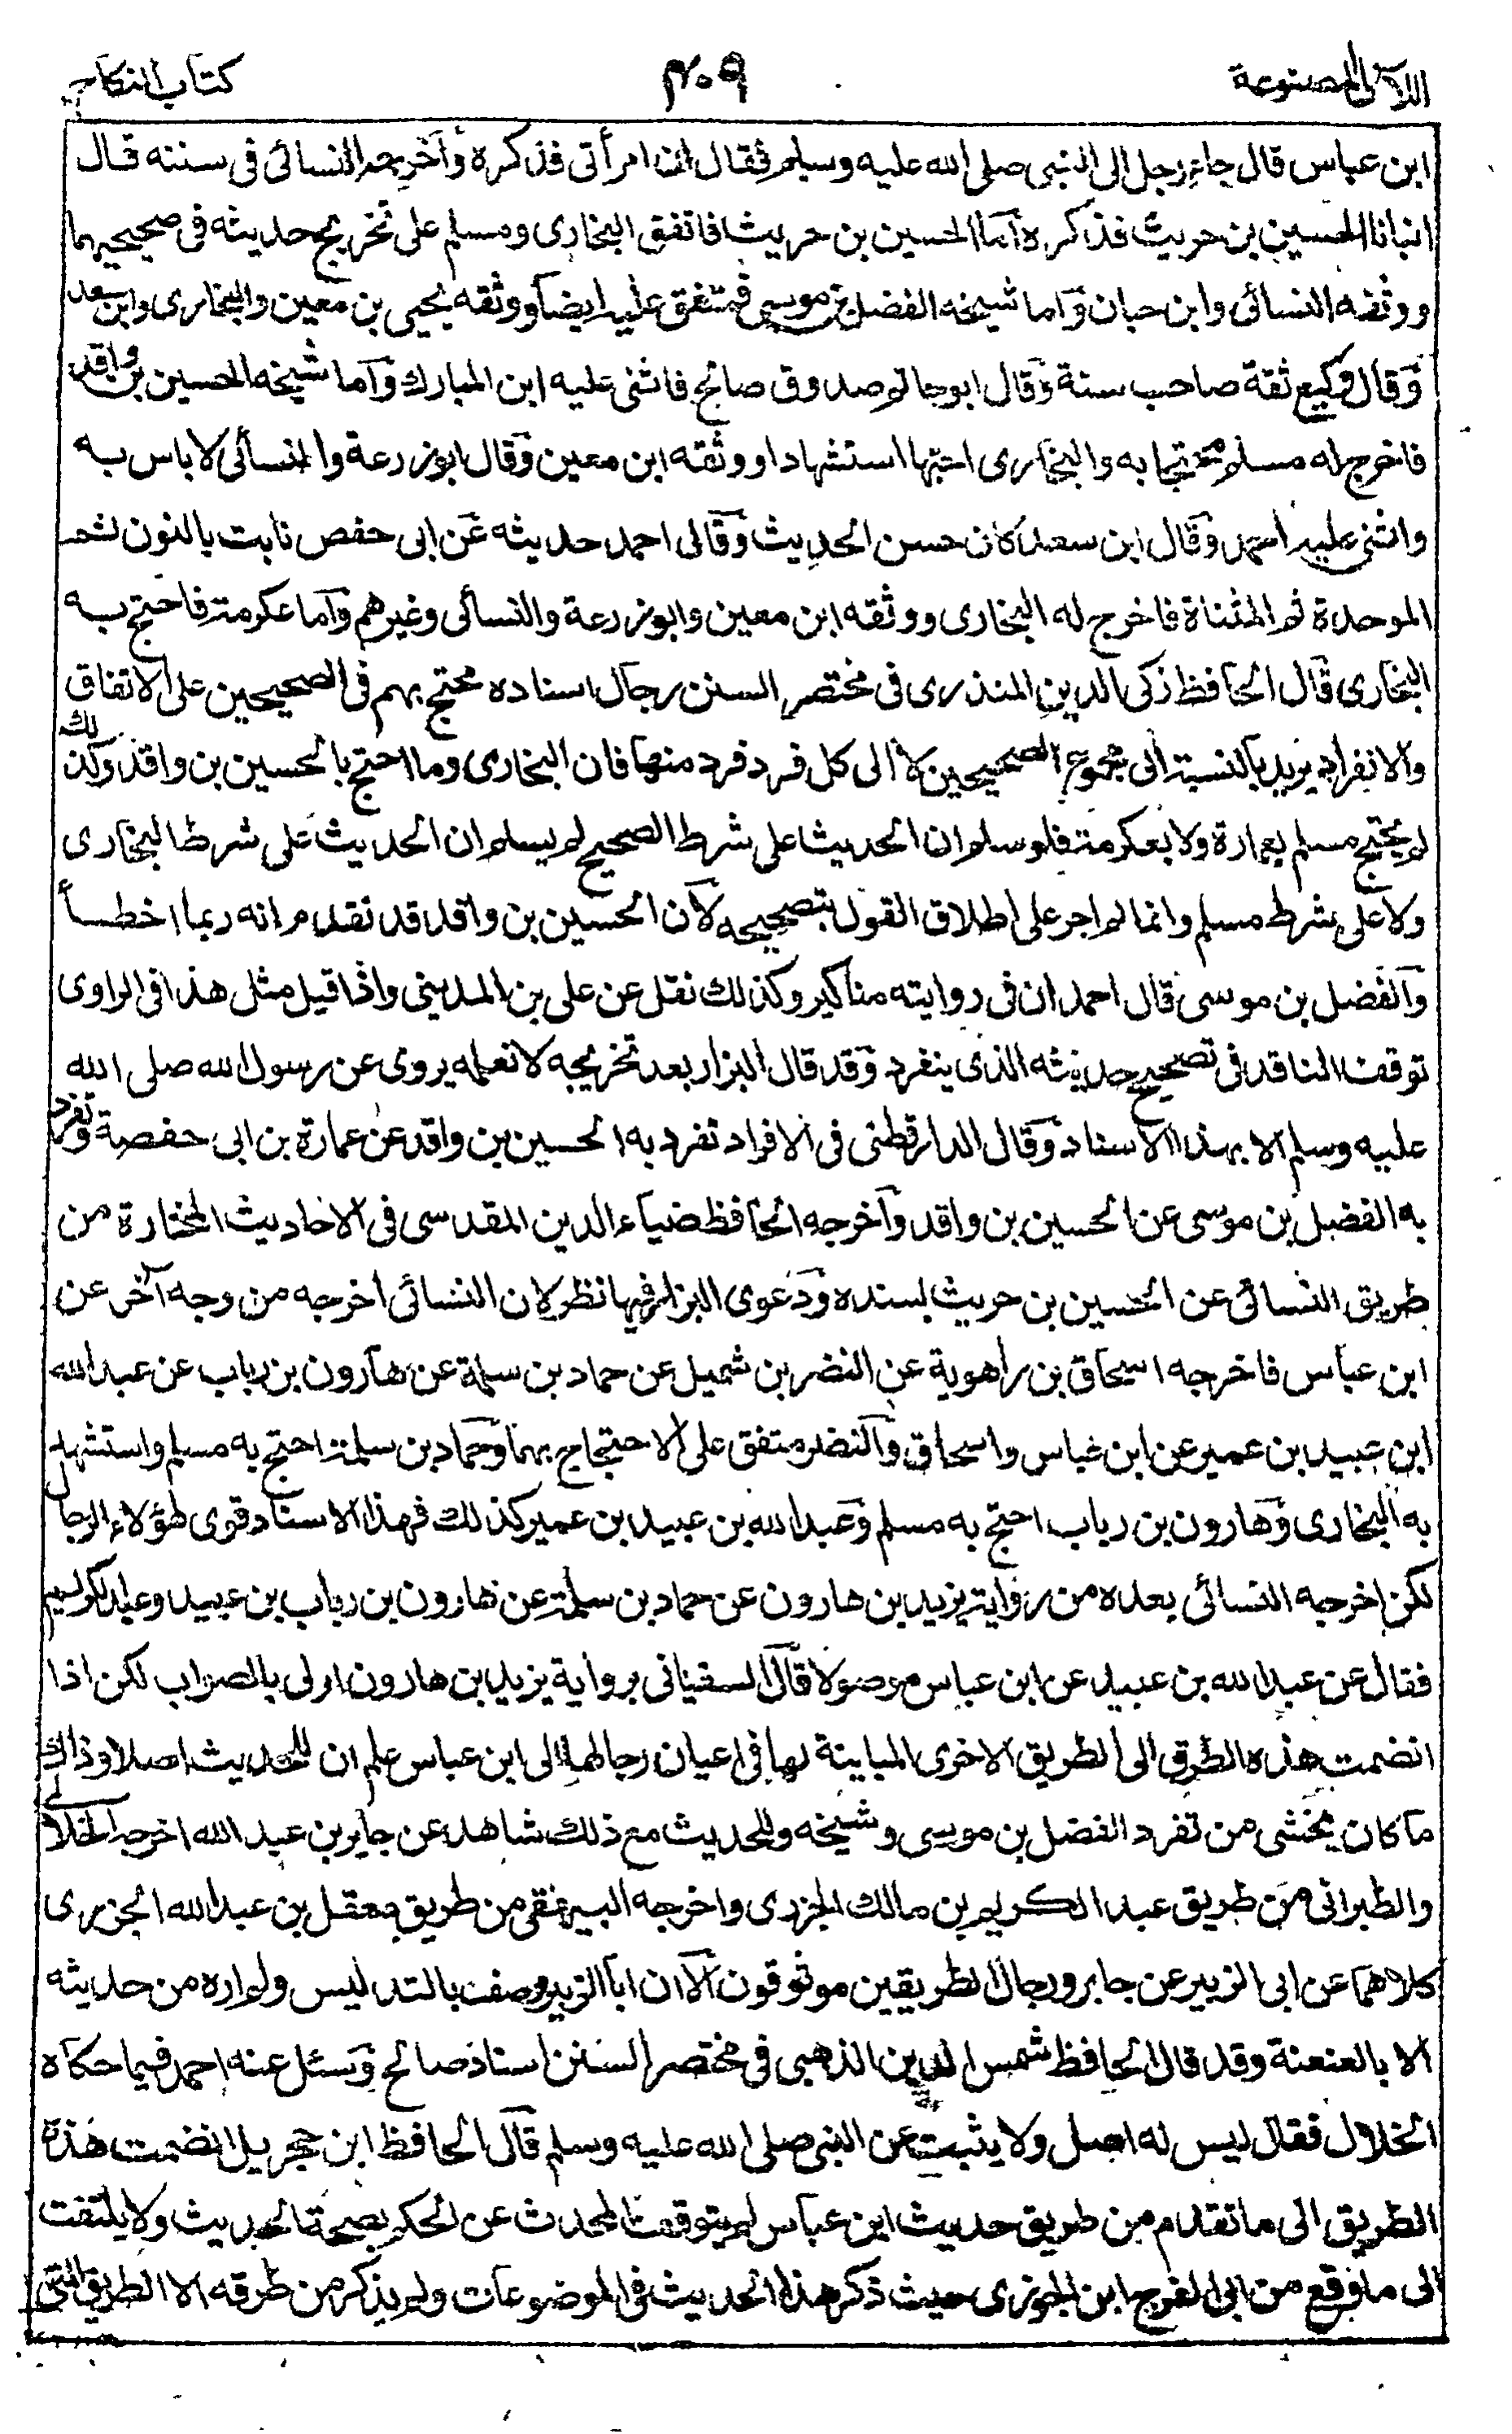 اللآلى المصنوعة ٣٠٩ كتاب النكاح
ابن عباس قال جاء رجل الى النبى صلى الله عليه وسلم فقال ان امرأتى فذكره وأخرجه النسائى فى سننه قال
انبانا الحسين بن حريث فذكره اما الحسين بن حريث فاتفق البخارى ومسلم على تخريج حديثه فى صحيحيهما
ووثقه النسائى وابن حبان واما شيخه الفضل بن موسى فمتفق عليه ايضا ووثقه يحيى بن معين والبخارى وابن سعد
وقال وكيع ثقة صاحب سنة وقال ابو حاتم صدوق صالح فاثنى عليه ابن المبارك واما شيخه الحسين بن واقد
فاخرج له مسلم محتجا به والبخارى استشهادا ووثقه ابن معين وقال ابو زرعة والنسائى لا باس به
واثنى عليه احمد وقال ابن سعد كان حسن الحديث وقال احمد حديثه عن ابى حفص نابت بالنون ثم
الموحدة ثم المثناة فاخرج له البخارى ووثقه ابن معين وابو زرعة والنسائى وغيرهم واما عكرمة فاحتج به
البخارى قال الحافظ زكى الدين المنذرى فى مختصر السنن رجال اسناده محتج بهم فى الصحيحين على الاتفاق
والانفراد يريد بالنسبة الى مجموع الصحيحين لا الى كل فرد فرد منها فان البخارى وما احتج بالحسين بن واقد وكذلك
لم يحتج مسلم بعمارة ولا بعكرمة فلو سلم ان الحديث على شرط الصحيح لم يسلم ان الحديث على شرط البخارى
ولا على شرط مسلم وانما لم اجر على اطلاق القول بتصحيحه لان الحسين بن واقد قد تقدم انه ربما اخطأ
والفضل بن موسى قال احمد ان فى روايته مناكير وكذلك نقل عن على بن المدينى واذا قيل مثل هذا فى الراوى
توقف الناقد فى تصحيح حديثه الذى ينفرد وقد قال البزار بعد تخريجه لا نعلمه يروى عن رسول الله صلى الله
عليه وسلم الا بهذا الاسناد وقال الدارقطنى فى الافراد تفرد به الحسين بن واقد عن عمارة بن ابى حفصة وتفرد
به الفضل بن موسى عن الحسين بن واقد وأخرجه الحافظ ضياء الدين المقدسى فى الاحاديث المختارة من
طريق النسائى عن الحسين بن حريث بسنده ودعوى البزار فيها نظر لان النسائى اخرجه من وجه آخر عن
ابن عباس فاخرجه اسحاق بن راهوية عن النضر بن شميل عن حماد بن سلمة عن هارون بن رياب عن عبد الله
ابن عبيد بن عمير عن ابن عباس واسحاق والنضر متفق على الاحتجاج بهما وحماد بن سلمة احتج به مسلم واستشهد
به البخارى وهارون بن رياب احتج به مسلم وعبد الله بن عبيد بن عمير كذلك فهذا الاسناد قوى لهؤلاء الرجال
لكن اخرجه النسائى بعده من رواية يزيد بن هارون عن حماد بن سلمة عن هارون بن رياب بن عبيد وعبد الكريم
فقال عن عبد الله بن عبيد عن ابن عباس موصولا قال السفيانى برواية يزيد بن هارون اولى بالصواب لكن اذا
انضمت هذه الطرق الى الطريق الاخرى المباينة لها فى اعيان رجالها الى ابن عباس علم ان للحديث اصلا وذاك
ما كان يخشى من تفرد الفضل بن موسى وشيخه وللحديث مع ذلك شاهد عن جابر بن عبد الله اخرجه الخلال
والطبرانى من طريق عبد الكريم بن مالك الجزرى واخرجه البيهقى من طريق معقل بن عبد الله الجزرى
كلاهما عن ابى الزبير عن جابر ورجال الطريقين موثوقون الا ان ابا الزبير وصف بالتدليس ولم اره من حديثه
الا بالعنعنة وقد قال الحافظ شمس الدين الذهبى فى مختصر السنن اسناد صالح وسئل عنه احمد فيما حكاه
الخلال فقال ليس له اصل ولا يثبت عن النبى صلى الله عليه وسلم قال الحافظ ابن حجر بل انضمت هذه
الطريق الى ما تقدم من طريق حديث ابن عباس لم يتوقف المحدث عن الحكم بصحة الحديث ولا يلتفت
الى ما وقع من ابى الفرج ابن الجوزى حيث ذكر هذا الحديث فى الموضوعات ولم يذكر من طرقه الا الطريق التى